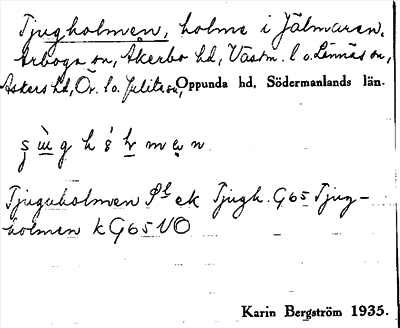 Tjugholmen, holme i Jälmaren,
Arboga sn, Åkerbo hd, Västm. l o. Lännäs sn,
Askers hd, Ör. l o. Julita sn, Oppunda hd, Södermanlands län.
Tjuguholmen Sk ek Tjugh. G65 Tjug-
holmen k G65 VO
Karin Bergström 1935.